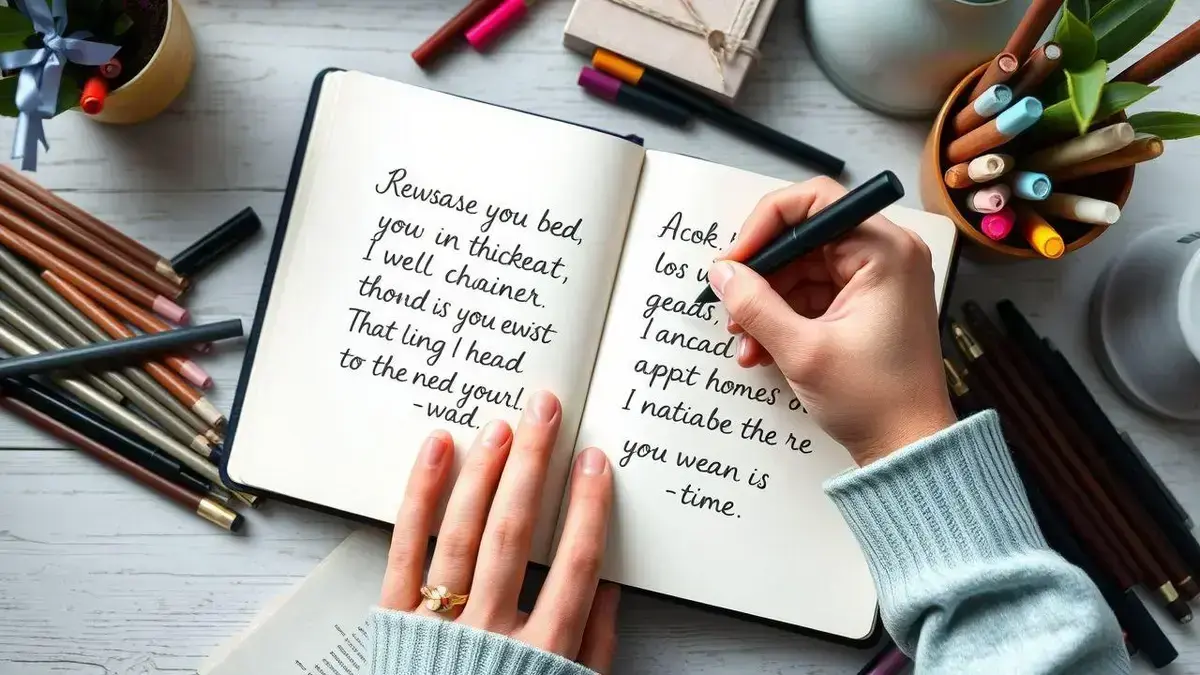 Rewsase you bed,
you in thickeat,
I well chainer.
thond is you ewist
That ling I head
to the ned yourl.
-wad.
Acok.
los
geads,
I ancad
appt homes
I natiabe the re
you wean is
-time.